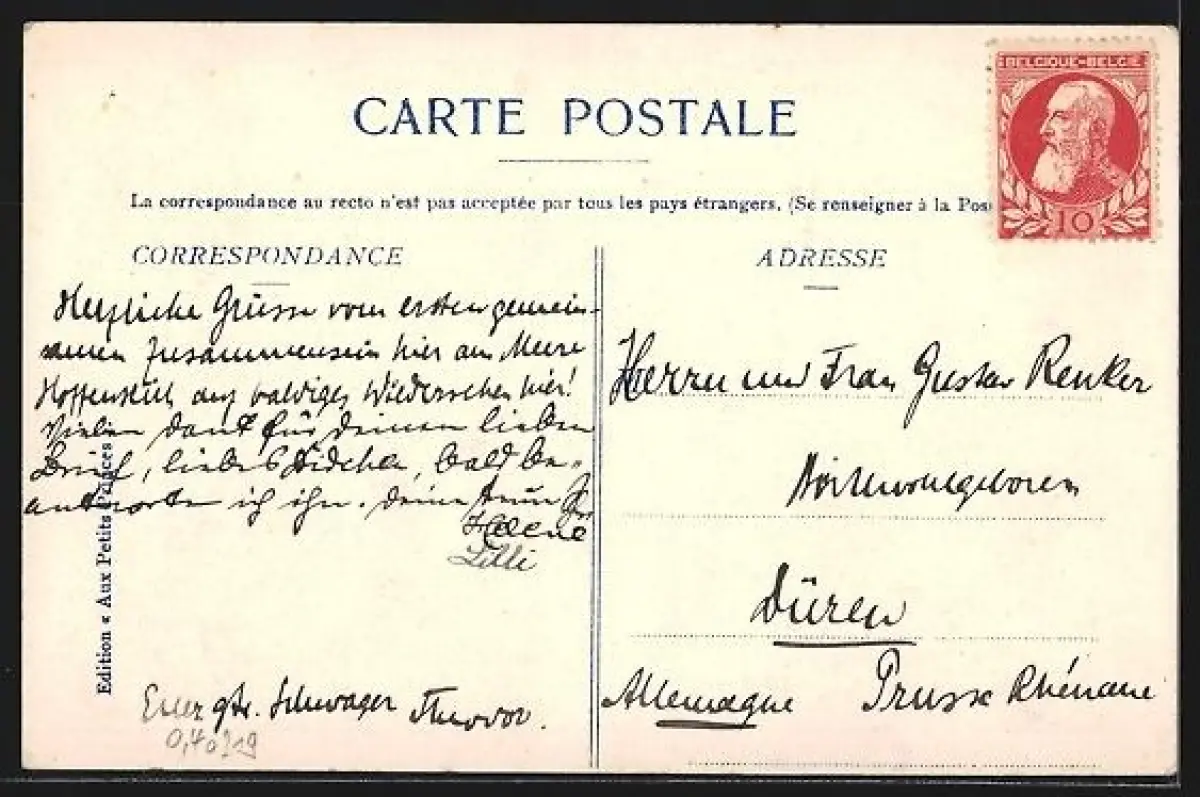 BELGIQUE-BELGIE
10
CARTE POSTALE
La correspondance au recto n'est pas acceptée par tous les pays étrangers. (Se renseigner à la Pos
CORRESPONDANCE
Herzliche Grüsse vom ersten gemein-
samen Zusammensein hier am Meere
Hoffentlich auf baldiges Wiedersehen hier!
Vielen Dank für Deinen lieben
Brief, liebes, bald be-
antworte ich ihn. Deine
Helene
Lilli
Euer gtr. Schwager Theodor.
0,40 219
Edition « Aux Petits Princes
ADRESSE
Herrn und Frau Gustav Renker
Düren
Allemagne Prusse Rhénane